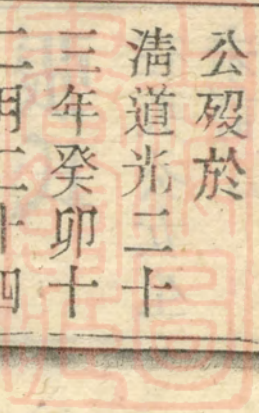 公歿於
淸道光二十
三年癸卯十
二月二十四